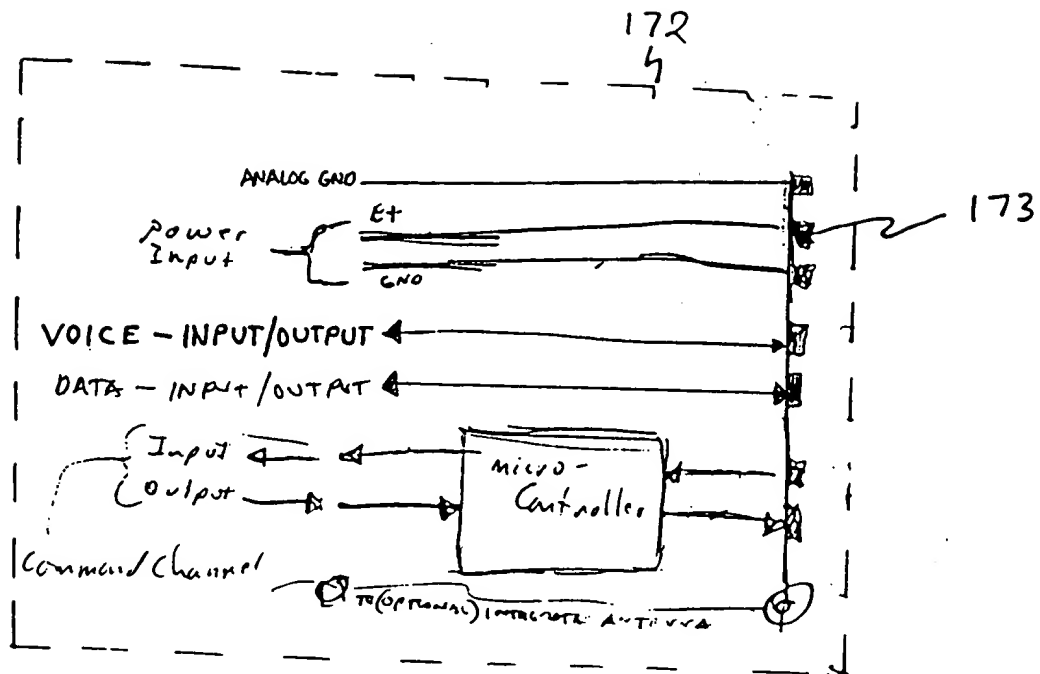 172
ANALOG GND
173
E+
Power
Input
GND
VOICE - INPUT/OUTPUT
DATA - INPUT/OUTPUT
Input
Output
Micro-
Controller
Command Channel
TO (OPTIONAL) INTEGRATE ANTENNA